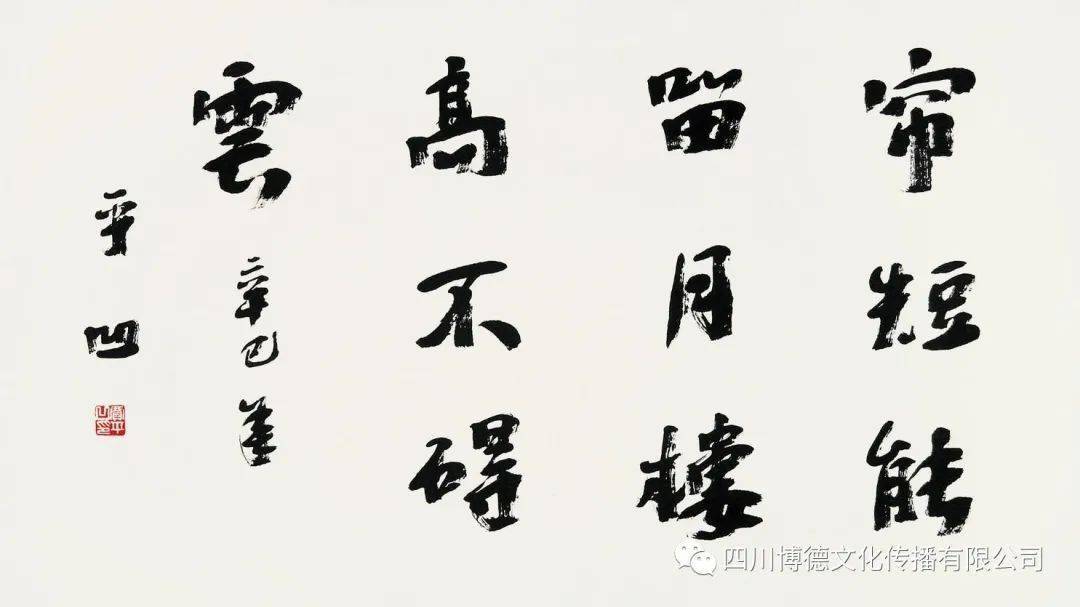 帘短能
留月樓
高不碍
雲
辛巳
平凹
四川博德文化传播有限公司